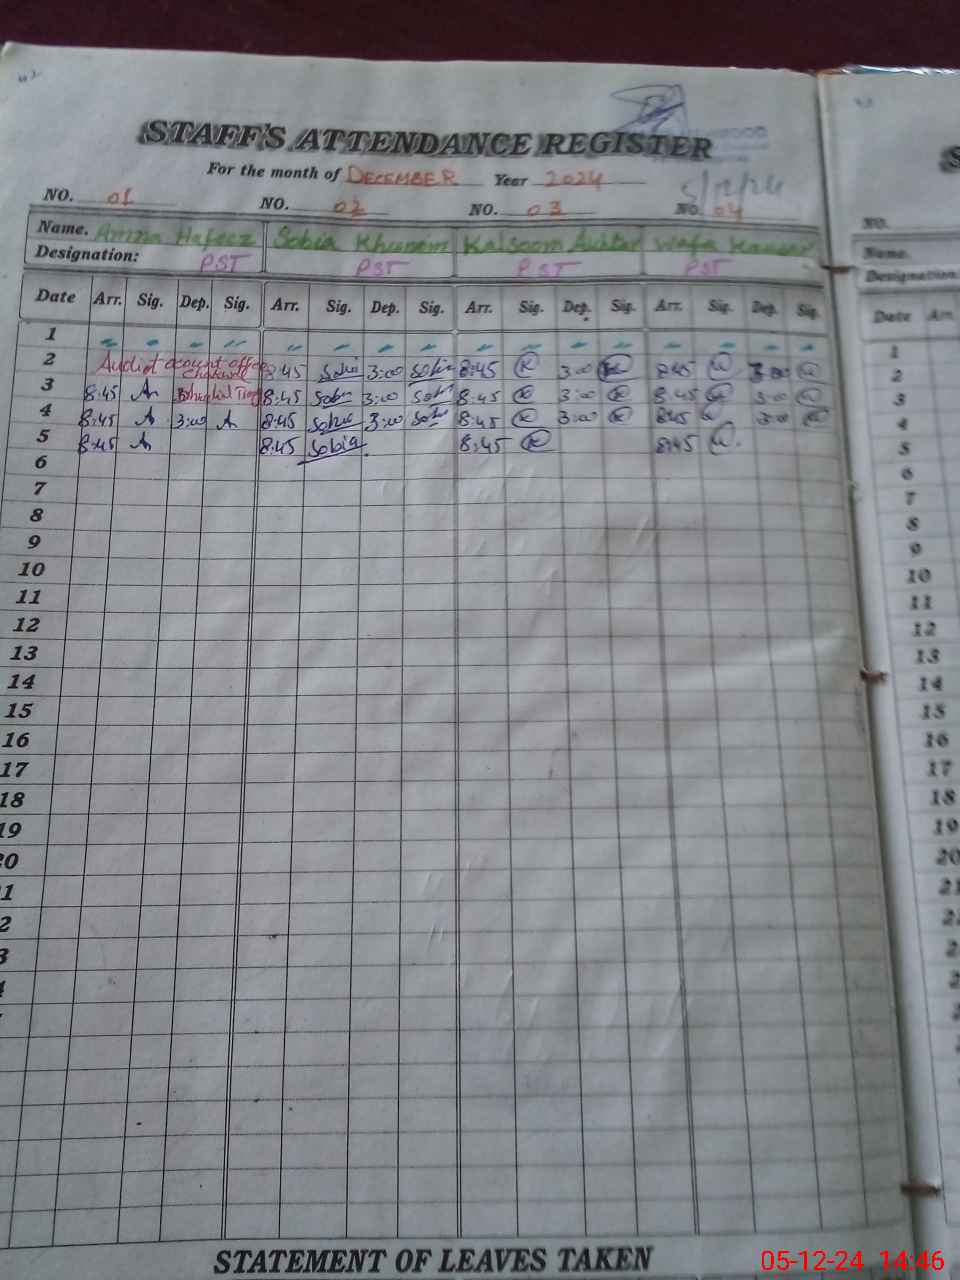 STAFF'S ATTENDANCE REGISTER
For the month of DECEMBER Year 2024
5/12/24
NO. 01 NO. 02 NO. 03 NO. 04
Name. Amna Hafeez Sobia Khunam Kalsoom Akhtar Wafa Kausar
Designation: PST PST PST PST
Date Arr. Sig. Dep. Sig. Arr. Sig. Dep. Sig. Arr. Sig. Dep. Sig. Arr. Sig. Dep. Sig.
1
2 Audiot account office 8:45 Sobia 3:00 Sobia 8:45 K 3:00 K 8:45 3:00
Chakwal
3 8:45 8:45 Sobia 3:00 Sobia 8:45 K 3:00 K 8:45 3:00
4 8:45 A 3:00 A 8:45 Sobia 3:00 Sobia 8:45 K 3:00 K 8:45 3:00
5 8:45 8:45 Sobia 8:45 K 8:45
6
7
8
9
10
11
12
13
14
15
16
17
18
19
20
STATEMENT OF LEAVES TAKEN
NO.
Name.
Designation:
Date Arr.
1
2
3
4
5
6
7
8
9
10
11
12
13
14
15
16
17
18
19
20
05-12-24 14:46